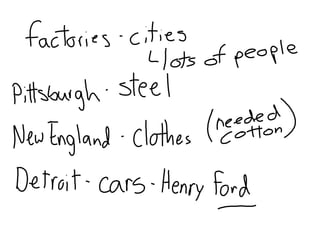 factories · cities
↳ lots of people
Pittsburgh · steel
New England · clothes (needed cotton)
Detroit - cars - Henry Ford